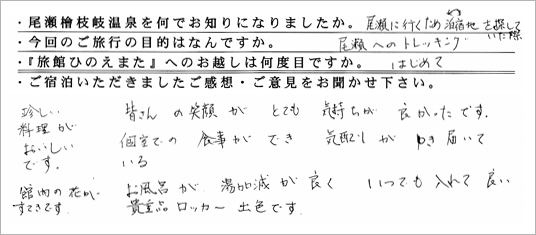 ・尾瀬檜枝岐温泉を何でお知りになりましたか。 尾瀬に行くため宿泊地を探していた際
・今回のご旅行の目的はなんですか。 尾瀬へのトレッキング
・『旅館ひのえまた』へのお越しは何度目ですか。 はじめて
・ご宿泊いただきましたご感想・ご意見をお聞かせ下さい。
珍しい料理がおいしいです。
皆さんの笑顔がとても気持ちが良かったです。
個室での食事ができ気配りがゆき届いている
館内の花がすてきです。
お風呂が湯加減が良くいつでも入れて良い
貴重品ロッカー出色です。